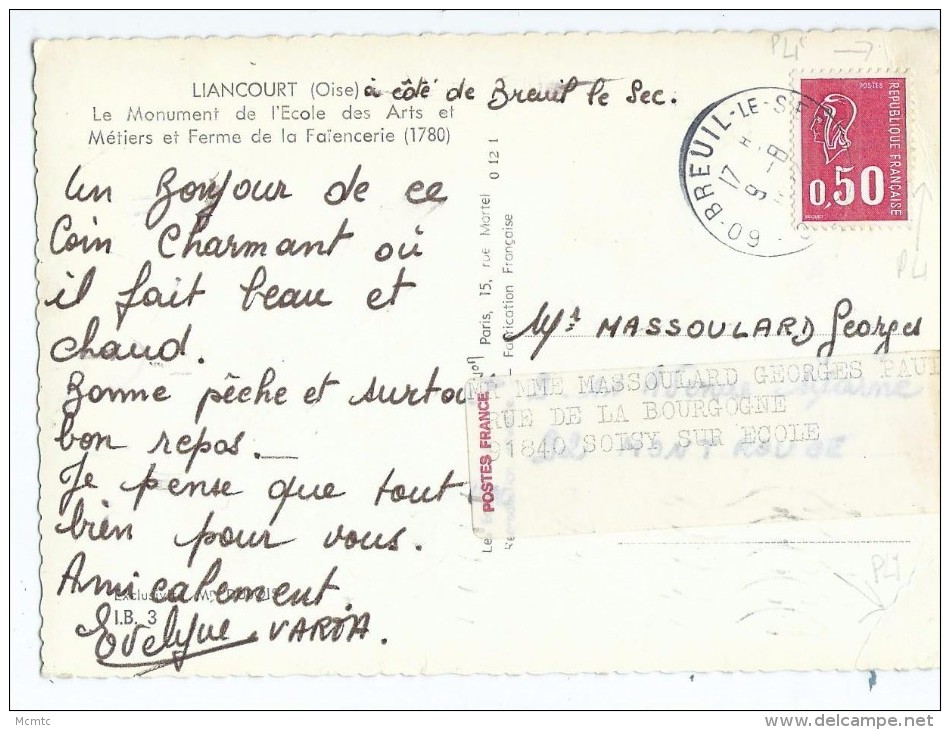 PLi →
LIANCOURT (Oise) à côté de Breuil le Sec.
Le Monument de l'Ecole des Arts et
Métiers et Ferme de la Faïencerie (1780)
Un Bonjour de ce
Coin Charmant où
il fait beau et
chaud.
Bonne pêche et surtout
bon repos.
Je pense que tout
bien pour vous.
Amicalement.
Evelyne VARDA.
I.B. 3
Paris, 15, rue Martel 0 12 1
Fabrication Française
BREUIL-LE-SEC
17 H
9 -8
60
POSTES
REPUBLIQUE FRANÇAISE
0,50
PLi
Mr MASSOULARD Georges
MR MME MASSOULARD GEORGES PAUL
RUE DE LA BOURGOGNE
91840 SOISY SUR ECOLE
MONT ROUGE
POSTES FRANCE
PLi
Mcmtc
www.delcampe.net